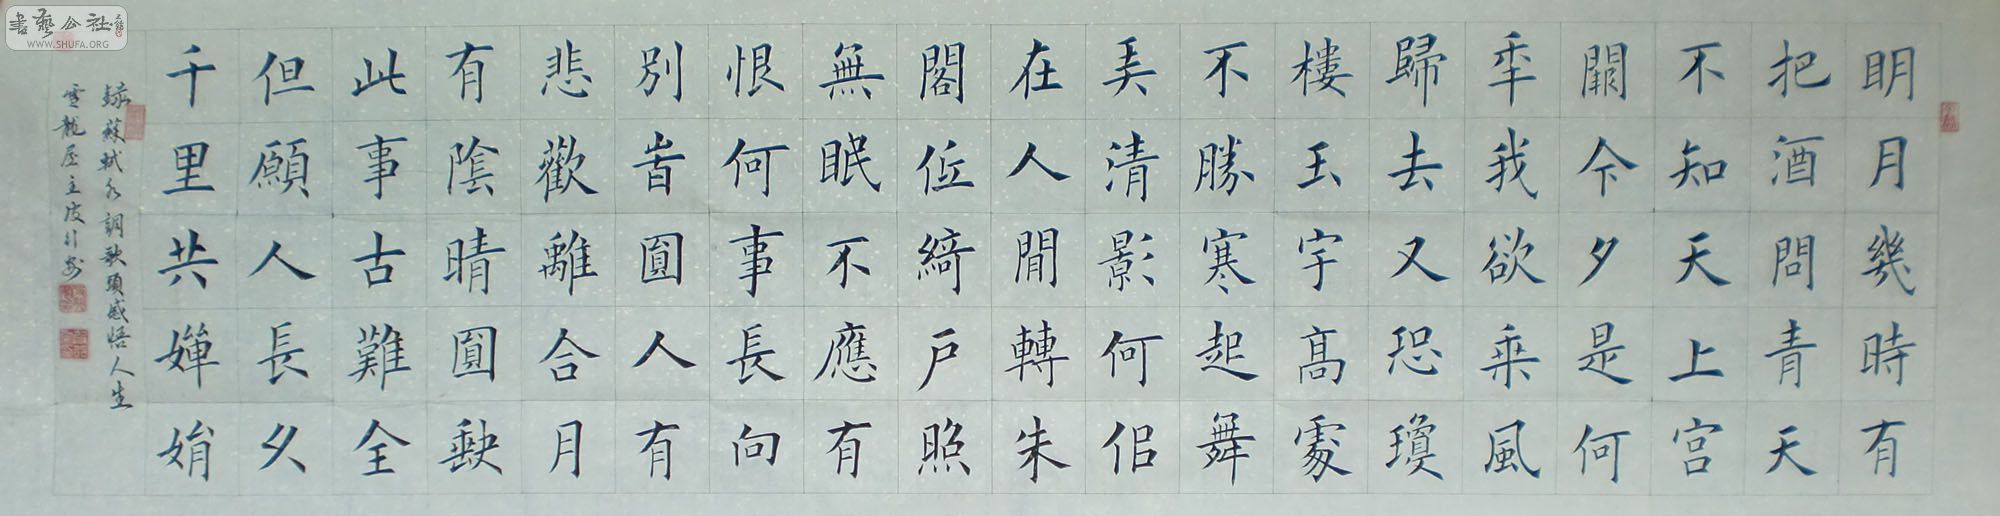 書藝公社
WWW.SHUFA.ORG
明月幾時有
把酒問青天
不知天上宮
闕今夕是何
年我欲乗風
歸去又恐瓊
樓玉宇高處
不勝寒起舞
弄清影何佀
在人間轉朱
閣低綺戶照
無眠不應有
恨何事長向
別旹圓人有
悲歡離合月
有陰晴圓缺
此事古難全
但願人長久
千里共嬋娟
錄蘇軾水調歌頭感悟人生
龍屋主